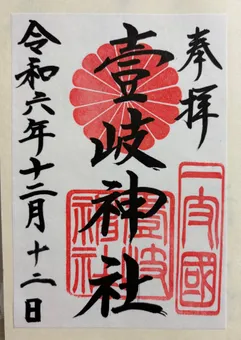 奉拝
壹岐神社
令和六年十二月十二日
壹岐
神社